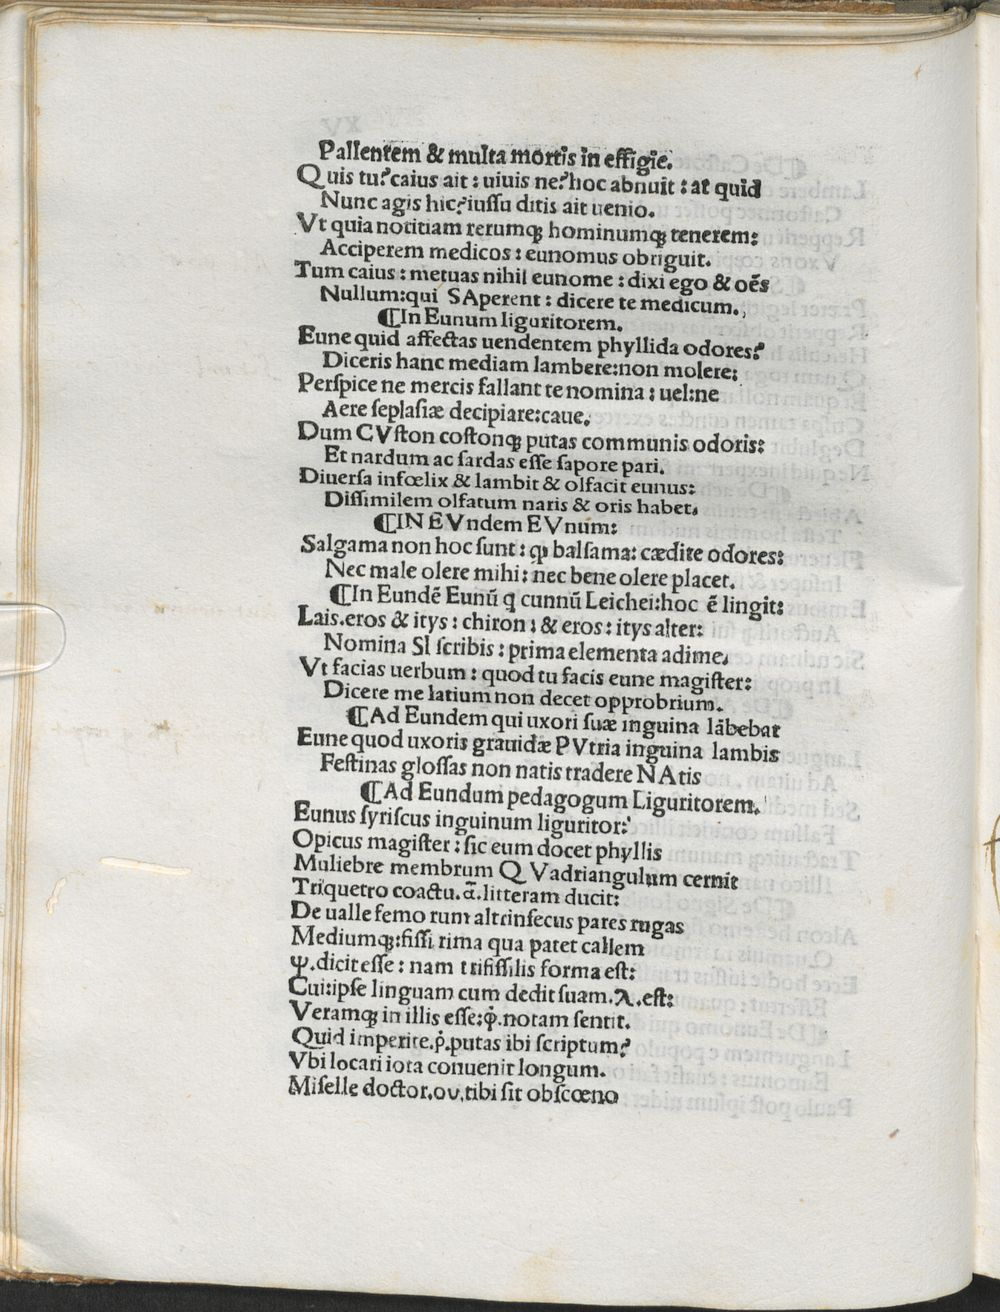 Pallentem & multa mortis in effigie.
Quis tu? caius ait : uiuis ne? hoc abnuit : at quid
Nunc agis hic? iussu ditis ait uenio.
Vt quia notitiam rerumqȝ hominumqȝ tenerem:
Acciperem medicos : eunomus obriguit.
Tum caius : metuas nihil eunome : dixi ego & oēs
Nullum:qui SAperent : dicere te medicum.
¶In Eunum liguritorem.
Eune quid affectas uendentem phyllida odores?
Diceris hanc mediam lambere:non molere:
Perſpice ne mercis fallant te nomina : uel:ne
Aere ſeplaſiæ decipiare:caue.
Dum CVſton coſtonqȝ putas communis odoris:
Et nardum ac ſardas eſſe ſapore pari.
Diuerſa infœlix & lambit & olfacit eunus:
Diſſimilem olfatum naris & oris habet.
¶IN EVndem EVnum:
Salgama non hoc ſunt : ꝙ balſama: cædite odores:
Nec male olere mihi: nec bene olere placet.
¶In Eundē Eunū q cunnū Leichei:hoc ē lingit:
Lais.eros & itys : chiron : & eros : itys alter:
Nomina SI ſcribis : prima elementa adime.
Vt facias uerbum : quod tu facis eune magiſter:
Dicere me latium non decet opprobrium.
¶Ad Eundem qui uxori ſuæ inguina lābebat
Eune quod uxoris grauidæ PVtria inguina lambis
Feſtinas gloſſas non natis tradere NAtis
¶Ad Eundum pedagogum Liguritorem.
Eunus ſyriſcus inguinum liguritor:
Opicus magiſter : ſic eum docet phyllis
Muliebre membrum QVadriangulum cernit
Triquetro coactu.a̅.litteram ducit:
De ualle femo rum altrinſecus pares rugas
Mediumqȝ:fiſſi rima qua patet callem
ψ.dicit eſſe : nam trifiſſilis forma eſt:
Cui:ipſe linguam cum dedit ſuam.λ.eſt:
Veramqȝ in illis eſſe:φ.notam ſentit.
Quid imperite.ρ.putas ibi ſcriptum?
Vbi locari iota conuenit longum.
Miſelle doctor.ου.tibi ſit obſcœno